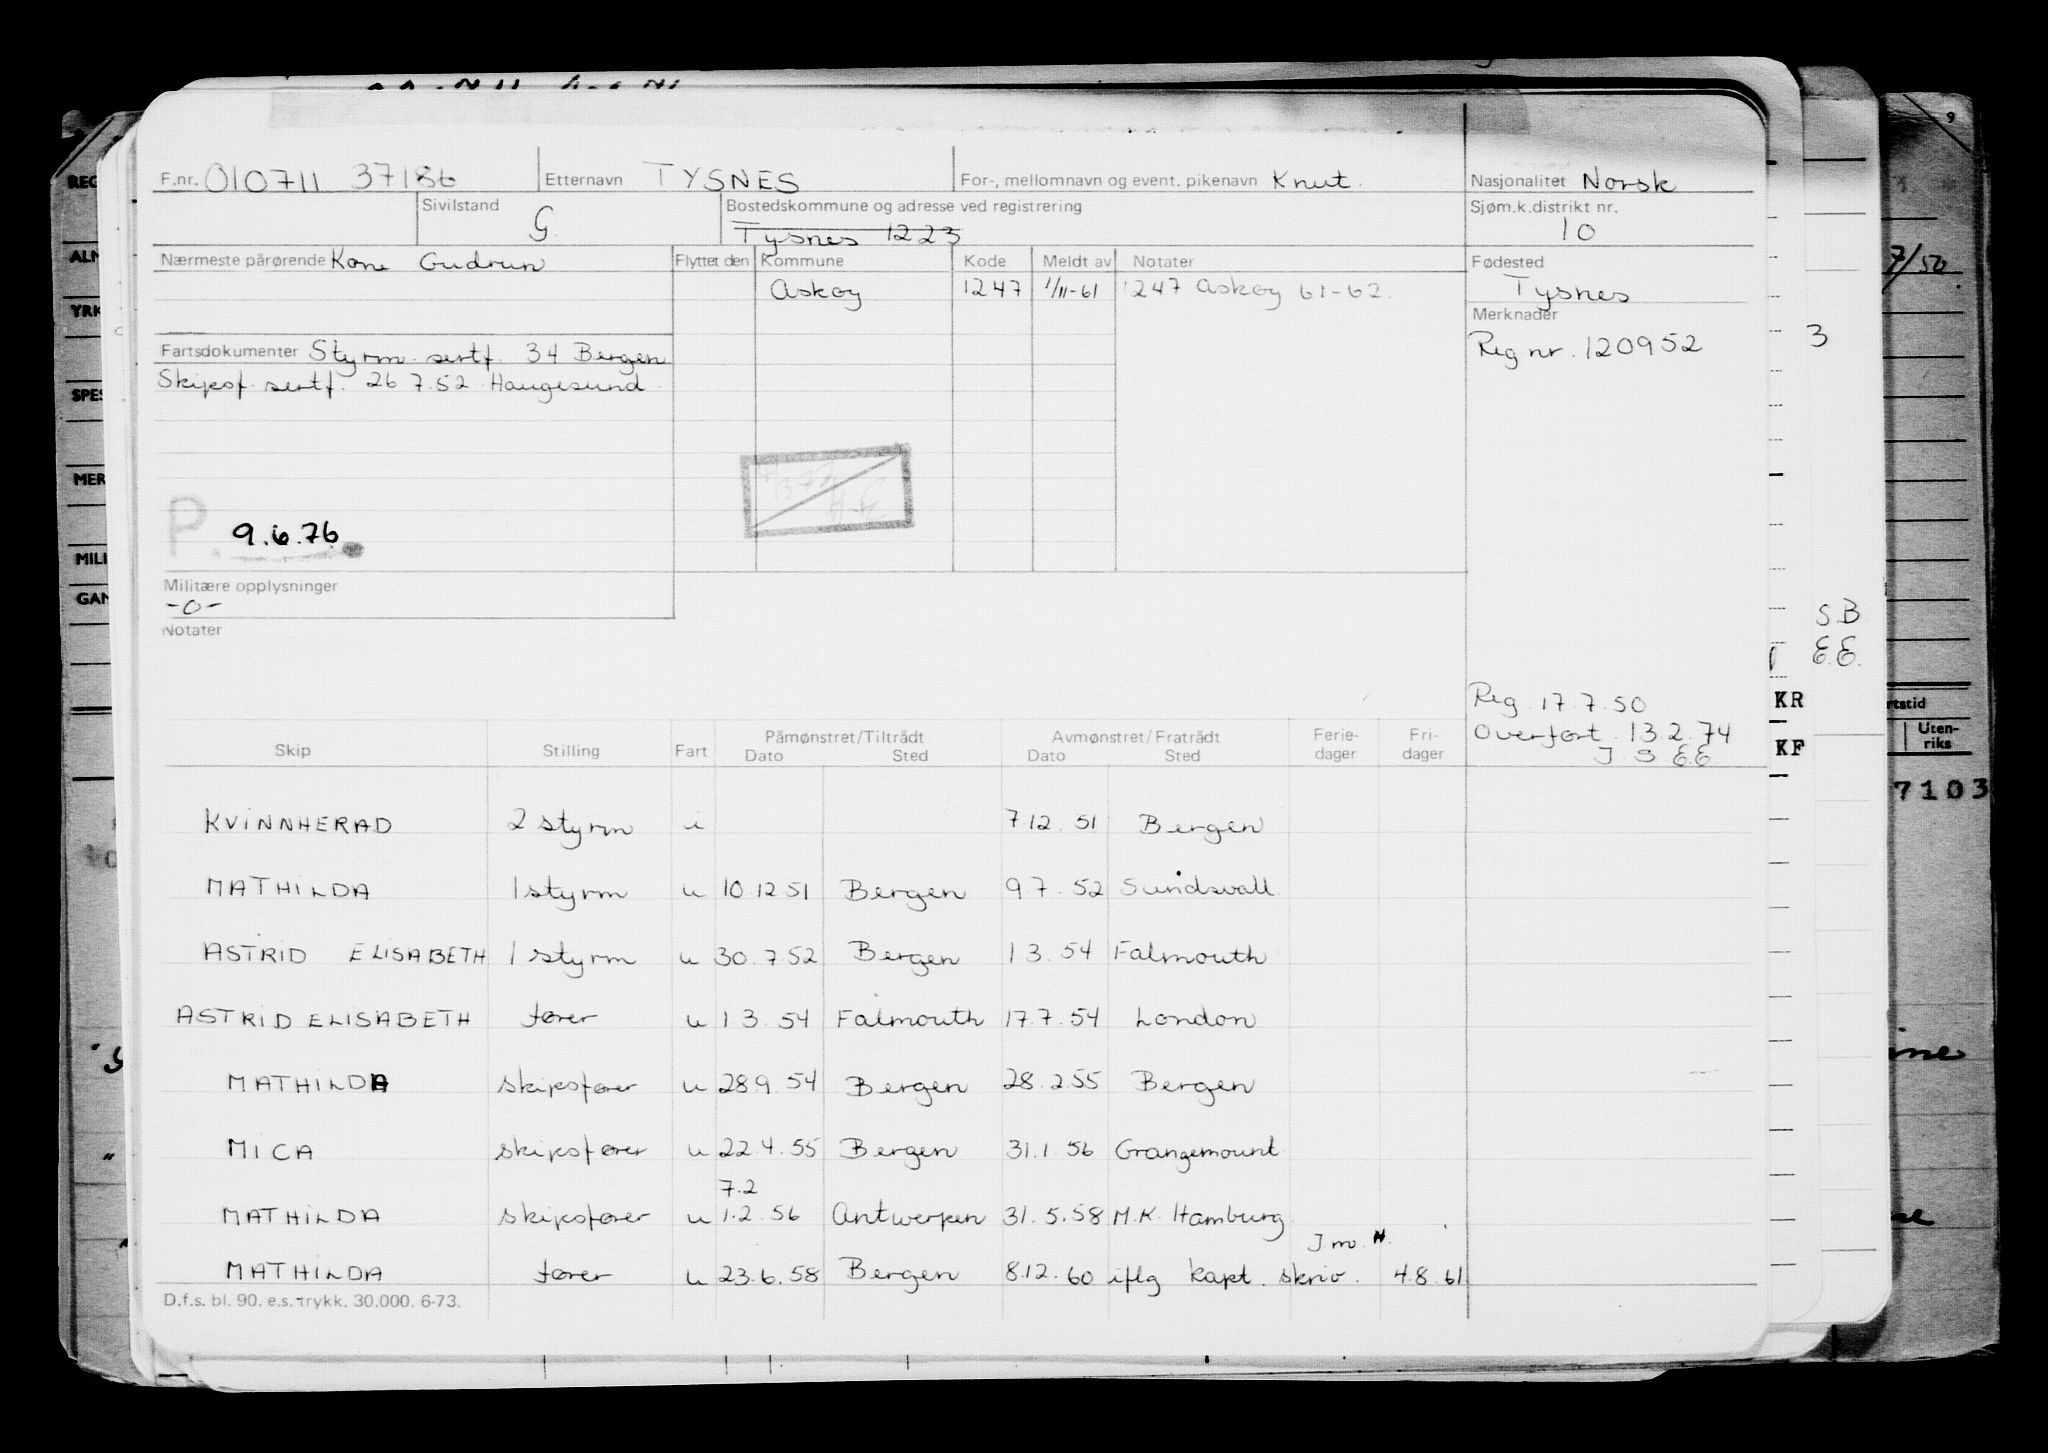 F.nr. 010711 37186 Etternavn TYSNES For-, mellomnavn og event. pikenavn Knut. Nasjonalitet Norsk
Sivilstand G. Bostedskommune og adresse ved registrering Sjøm.k.distrikt nr.
Tysnes 1223 10
Nærmeste pårørende Kone Gudrun Flyttet den Kommune Kode Meldt av Notater Fødested
Askøy 1247 1/11-61 1247 Askøy 61-62. Tysnes
Merknader
Fartsdokumenter Styrm. sertf. 34 Bergen Reg nr. 120952
Skipsf. sertf. 26.7.52 Haugesund.
P. 9.6.76
Militære opplysninger
-0-
Notater
Reg. 17.7.50
Overført. 13.2.74
J.S. E.E.
Skip Stilling Fart Påmønstret/Tiltrådt Avmønstret/Fratrådt Ferie- Fri-
Dato Sted Dato Sted dager dager
KVINNHERAD 2 styrm u 7.12.51 Bergen
MATHILDA 1 styrm u 10.12.51 Bergen 9.7.52 Sundsvall
ASTRID ELISABETH 1 styrm u 30.7.52 Bergen 1.3.54 Falmouth
ASTRID ELISABETH fører u 1.3.54 Falmouth 17.7.54 London
MATHILDA skipsfører u 28.9.54 Bergen 28.2.55 Bergen
MICA skipsfører u 22.4.55 Bergen 31.1.56 Grangemount
7.2
MATHILDA skipsfører u 1.2.56 Antwerpen 31.5.58 M.K. Hamburg
MATHILDA fører u 23.6.58 Bergen 8.12.60 iflg kapt. skriv. 4.8.61
D.f.s. bl. 90. e.s. trykk. 30.000. 6-73.
REG
YRK
SPES
MER
MILI
GAN
7/50
3
S.B
E.E.
KR
KF
rtstid
Uten-
riks
7103
9